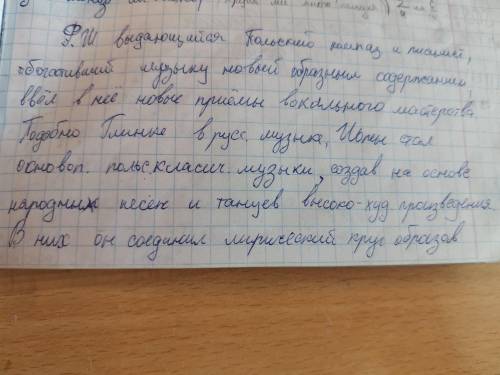 Ф.Ш выдающийся Польский композ и пианист,
обогативший музыку новым образным содержанием,
ввёл в неё новые приёмы вокального мастерства.
Подобно Глинке в русс. музыке, Шопен стал
основоп. польск класич. музыки, создав на основе
народных песен и танцев высоко-худ произведения
В них он соединил лирический круг образов